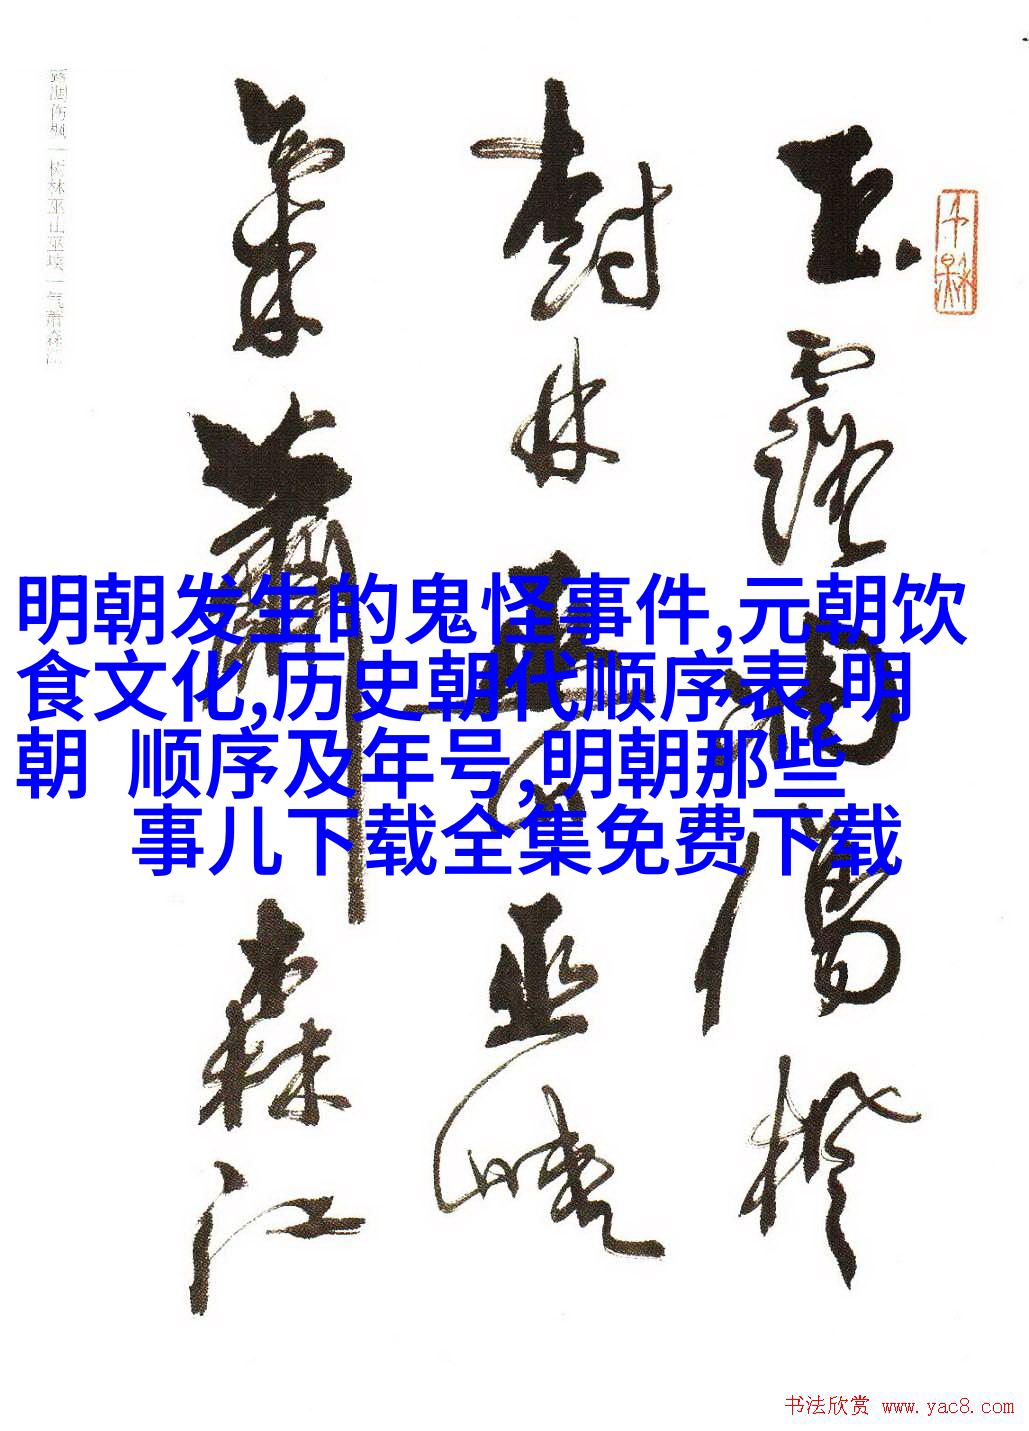 明朝发生的鬼怪事件,元朝饮
食文化,历史朝代顺序表,明
朝 顺序及年号,明朝那些
事儿下载全集免费下载
玉露凋伤枫
树林巫山巫峡
气萧森江
露凋伤枫一树林巫山巫峡一气萧森江
书法欣赏 www.yac8.com